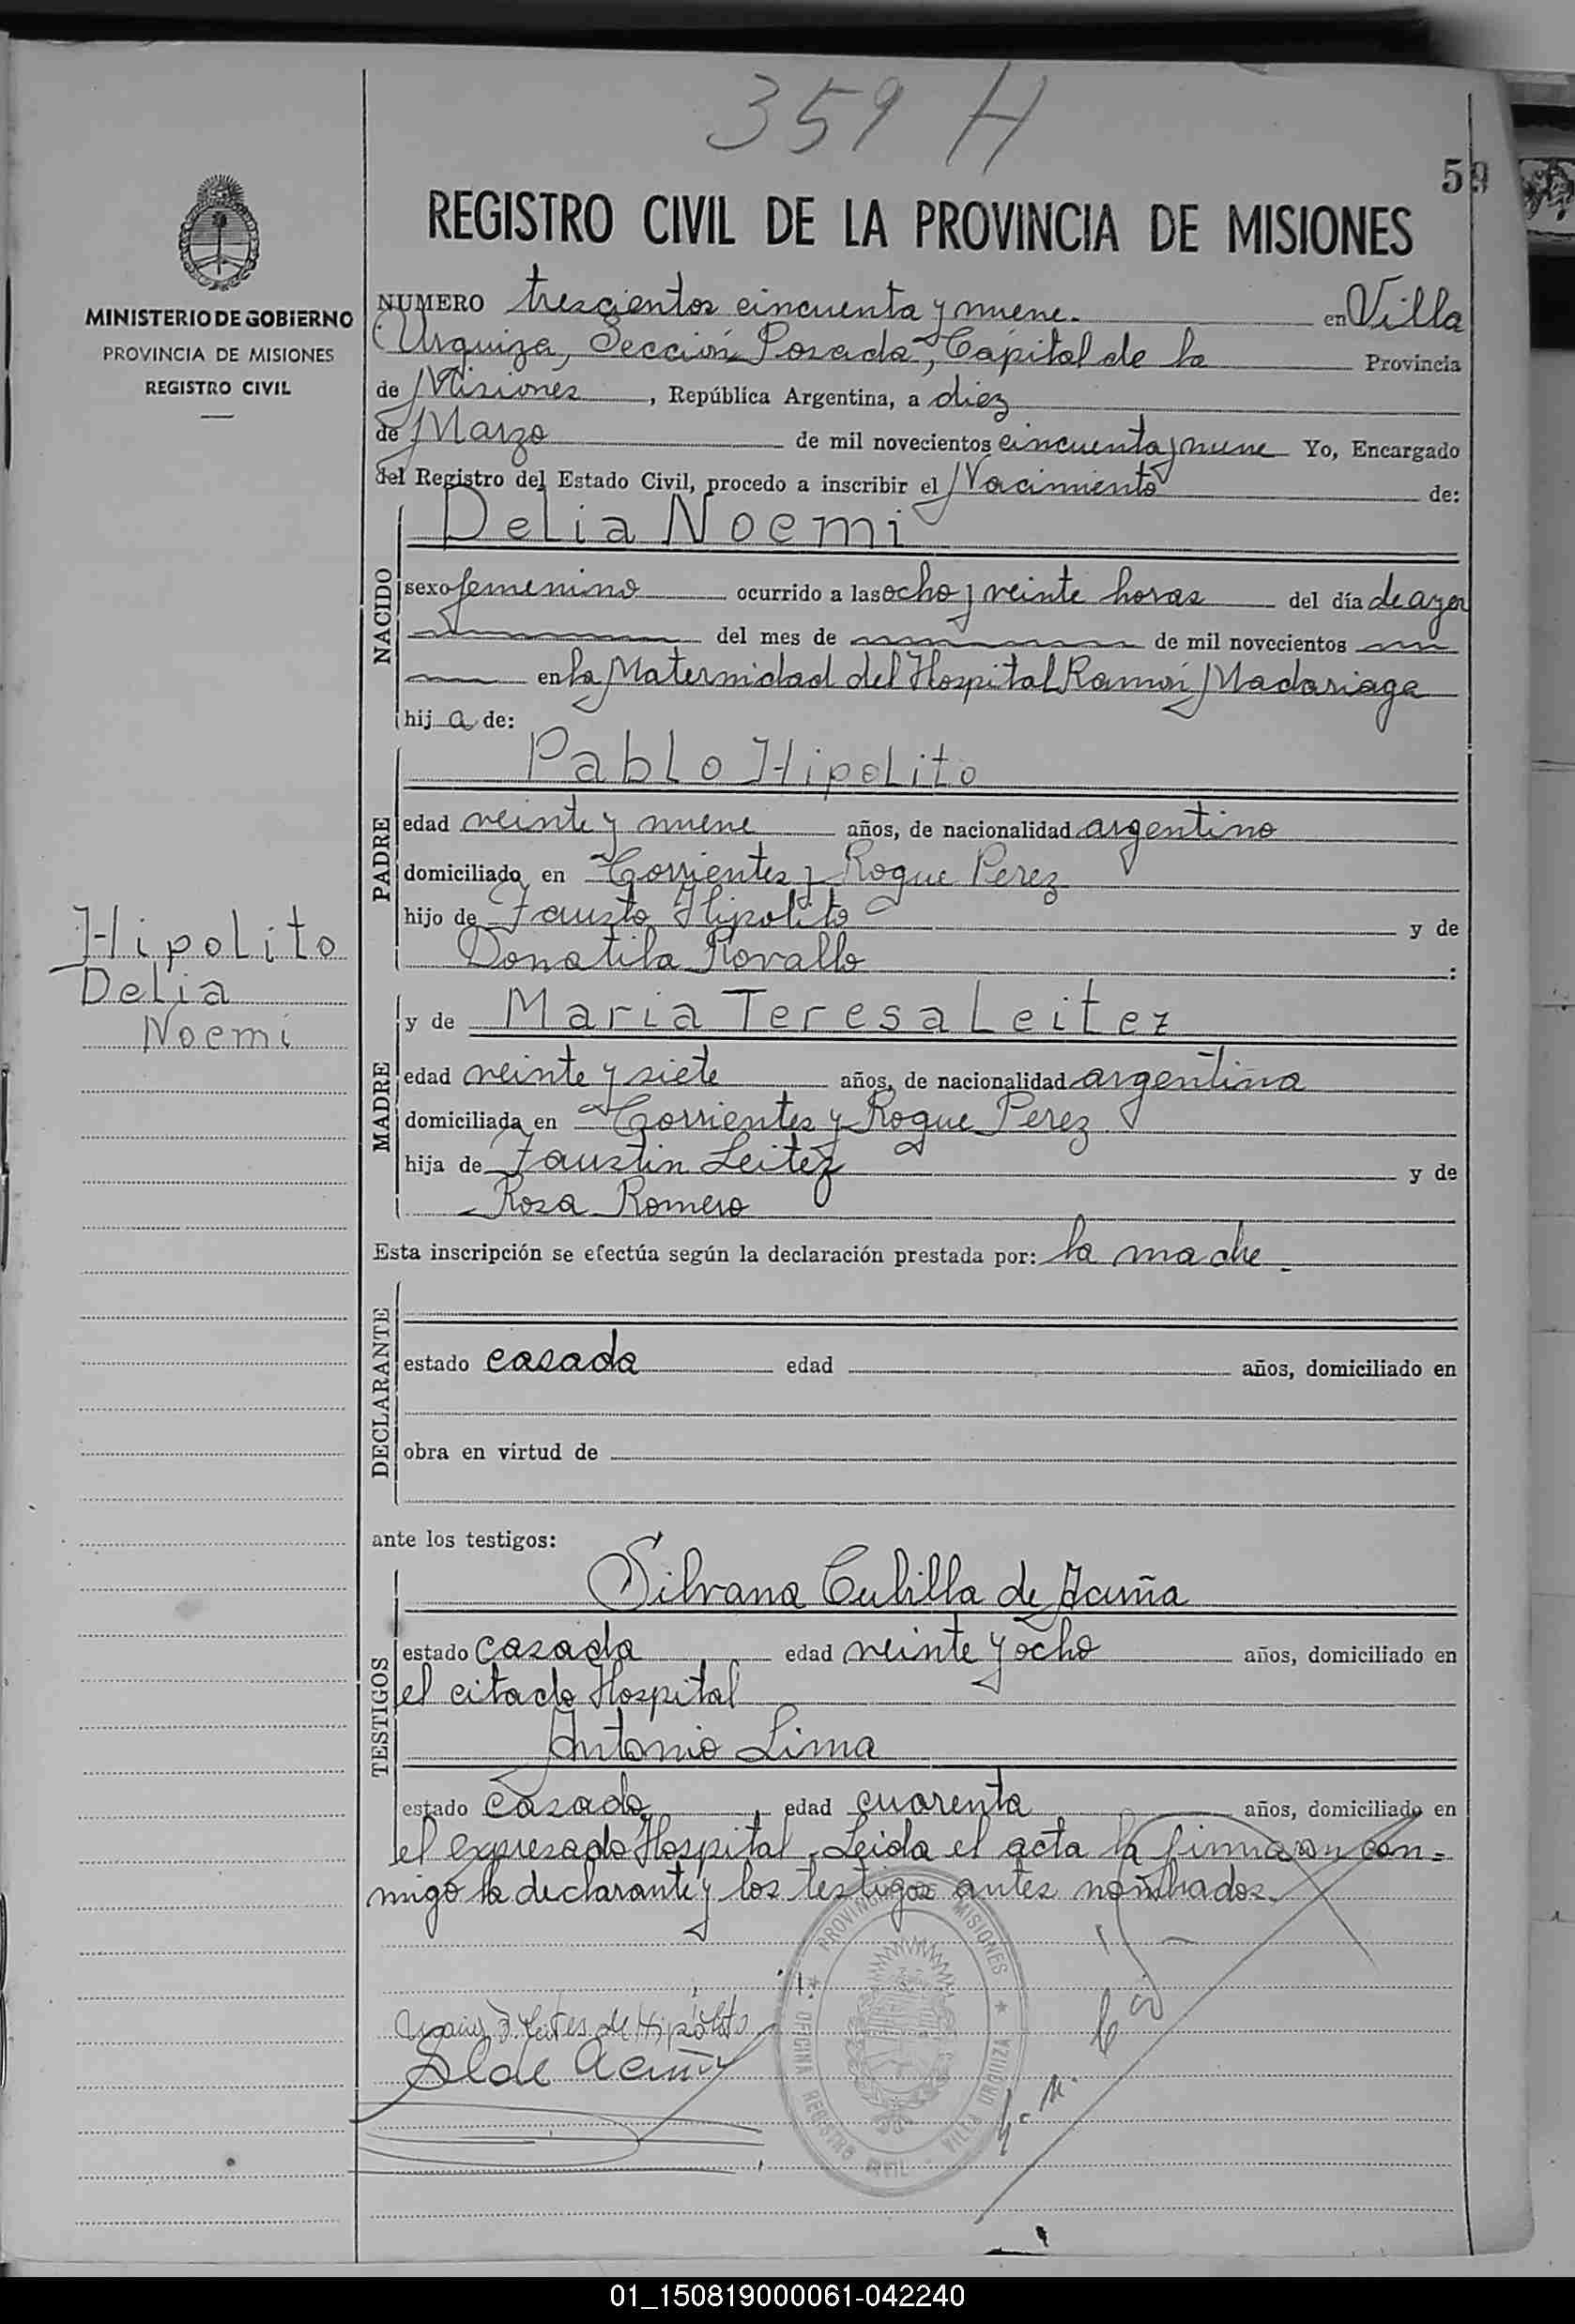 359 H
59
REGISTRO CIVIL DE LA PROVINCIA DE MISIONES
MINISTERIO DE GOBIERNO
PROVINCIA DE MISIONES
REGISTRO CIVIL
NUMERO trescientos cincuenta y nueve. en Villa
Urquiza, Sección Posadas, Capital de la Provincia
de Misiones, República Argentina, a diez
de Marzo de mil novecientos cincuenta y nueve Yo, Encargado
del Registro del Estado Civil, procedo a inscribir el Nacimiento de:
NACIDO
Delia Noemi
sexo femenino ocurrido a las ocho y veinte horas del día de ayer
del mes de de mil novecientos
en la Maternidad del Hospital Ramón Madariaga
hij a de:
PADRE
Pablo Hipolito
edad veinte y nueve años, de nacionalidad argentino
domiciliado en Corrientes y Roque Perez
hijo de Fausto Hipolito y de
Donatila Rovallo :
Hipolito
Delia
Noemi
MADRE
y de Maria Teresa Leitez
edad veinte y siete años, de nacionalidad argentina
domiciliada en Corrientes y Roque Perez
hija de Faustin Leitez y de
Rosa Romero
Esta inscripción se efectúa según la declaración prestada por: la madre.
DECLARANTE
estado casada edad años, domiciliado en
obra en virtud de
ante los testigos:
TESTIGOS
Silvana Cubilla de Acuña
estado casada edad veinte y ocho años, domiciliado en
el citado Hospital
Antonio Lima
estado casado, edad cuarenta años, domiciliado en
el expresado Hospital. Leida el acta la firmaron con=
migo la declarante y los testigos antes nombrados.
PROVINCIA MISIONES
OFICINA REGISTRO CIVIL VILLA URQUIZA
T. Leites de Hipolito
S. C. de Acuña
01_150819000061-042240